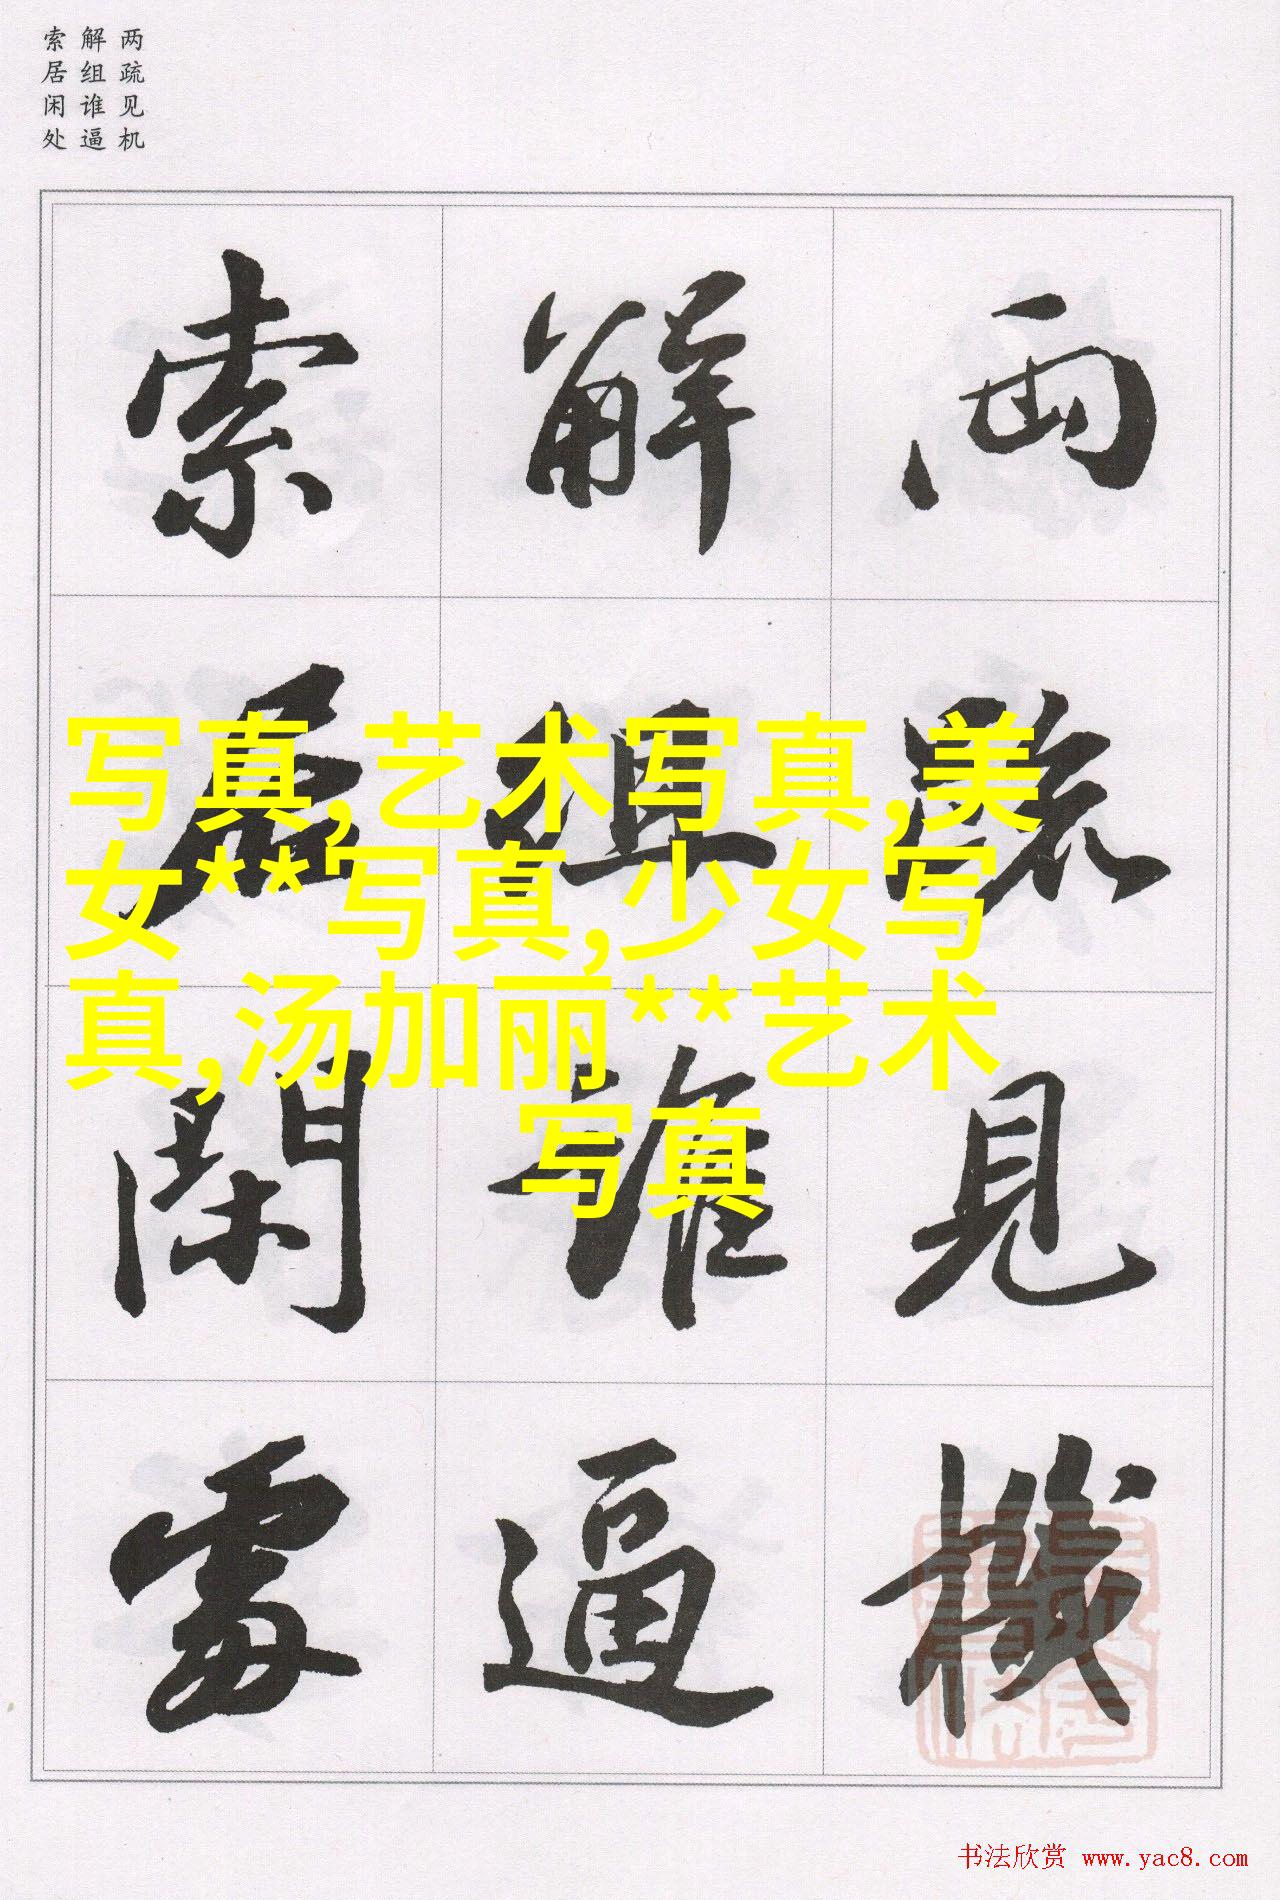 两疏见机
解组谁逼
索居闲处
两疏見機
解组谁逼
索居閑處
写真,艺术写真,美
女**写真,少女写
真,汤加丽**艺术
写真
书法欣赏 www.yac8.com